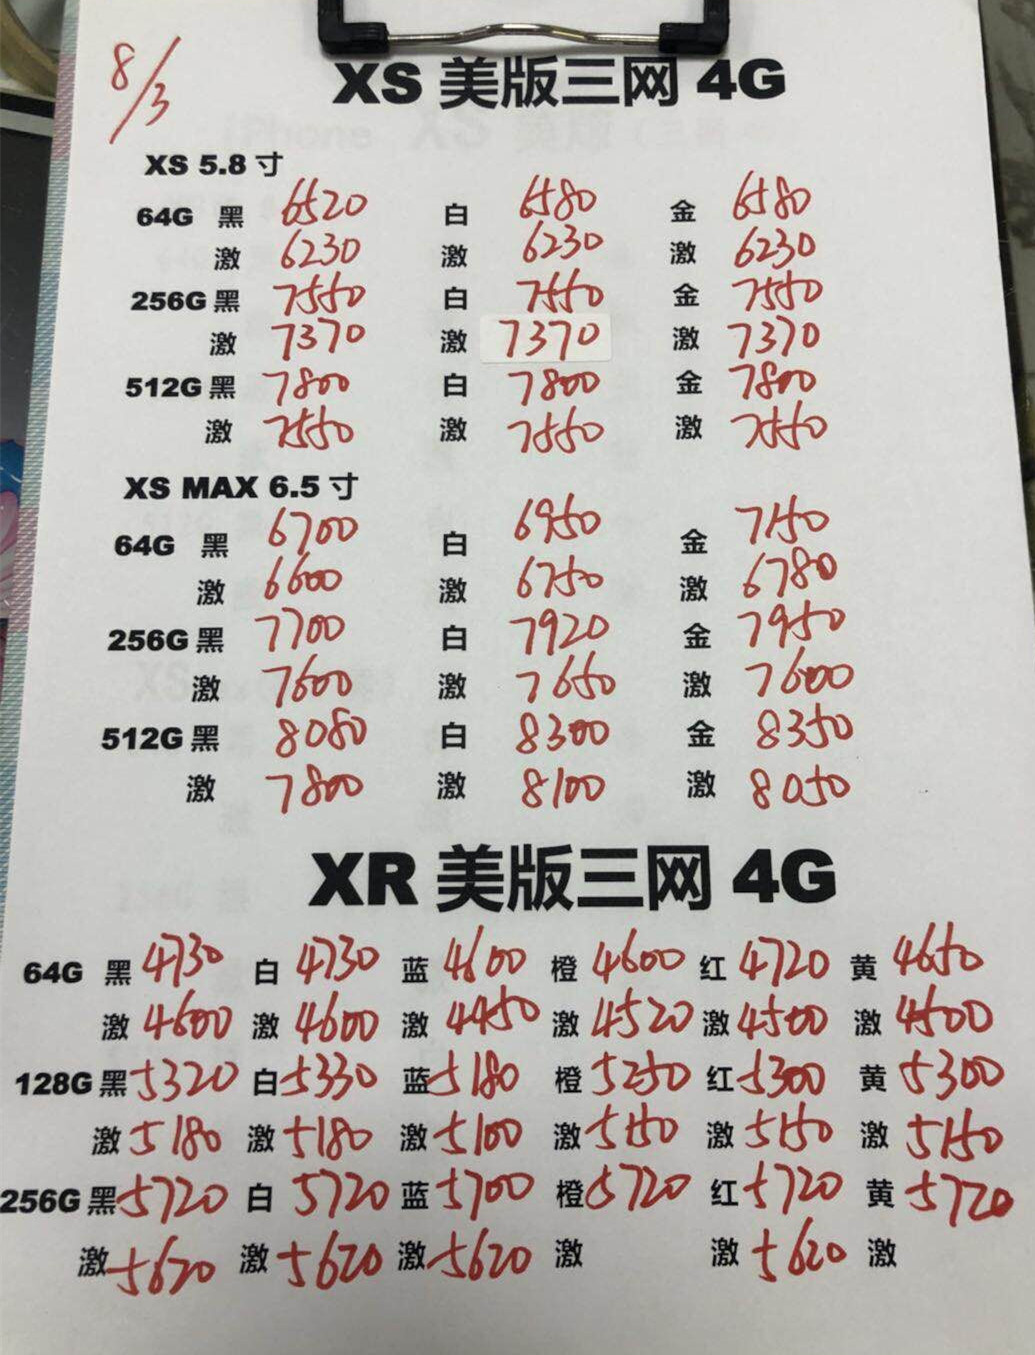 8/3
XS 美版三网 4G
XS 5.8 寸
64G 黑 6520 白 6580 金 6580
激 6230 激 6230 激 6230
256G 黑 7550 白 7550 金 7550
激 7370 激 7370 激 7370
512G 黑 7800 白 7800 金 7800
激 7550 激 7550 激 7550
XS MAX 6.5 寸
64G 黑 6700 白 6950 金 7150
激 6600 激 6750 激 6780
256G 黑 7700 白 7920 金 7950
激 7600 激 7650 激 7600
512G 黑 8080 白 8300 金 8350
激 7800 激 8100 激 8050
XR 美版三网 4G
64G 黑 4730 白 4730 蓝 4600 橙 4600 红 4720 黄 4650
激 4600 激 4600 激 4450 激 4520 激 4500 激 4500
128G 黑 5320 白 5330 蓝 5180 橙 5250 红 5300 黄 5300
激 5180 激 5180 激 5100 激 5150 激 5150 激 5150
256G 黑 5720 白 5720 蓝 5700 橙 5720 红 5720 黄 5720
激 5620 激 5620 激 5620 激 激 5620 激